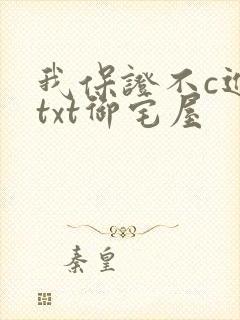 我保證不c进
txt御宅屋
秦皇